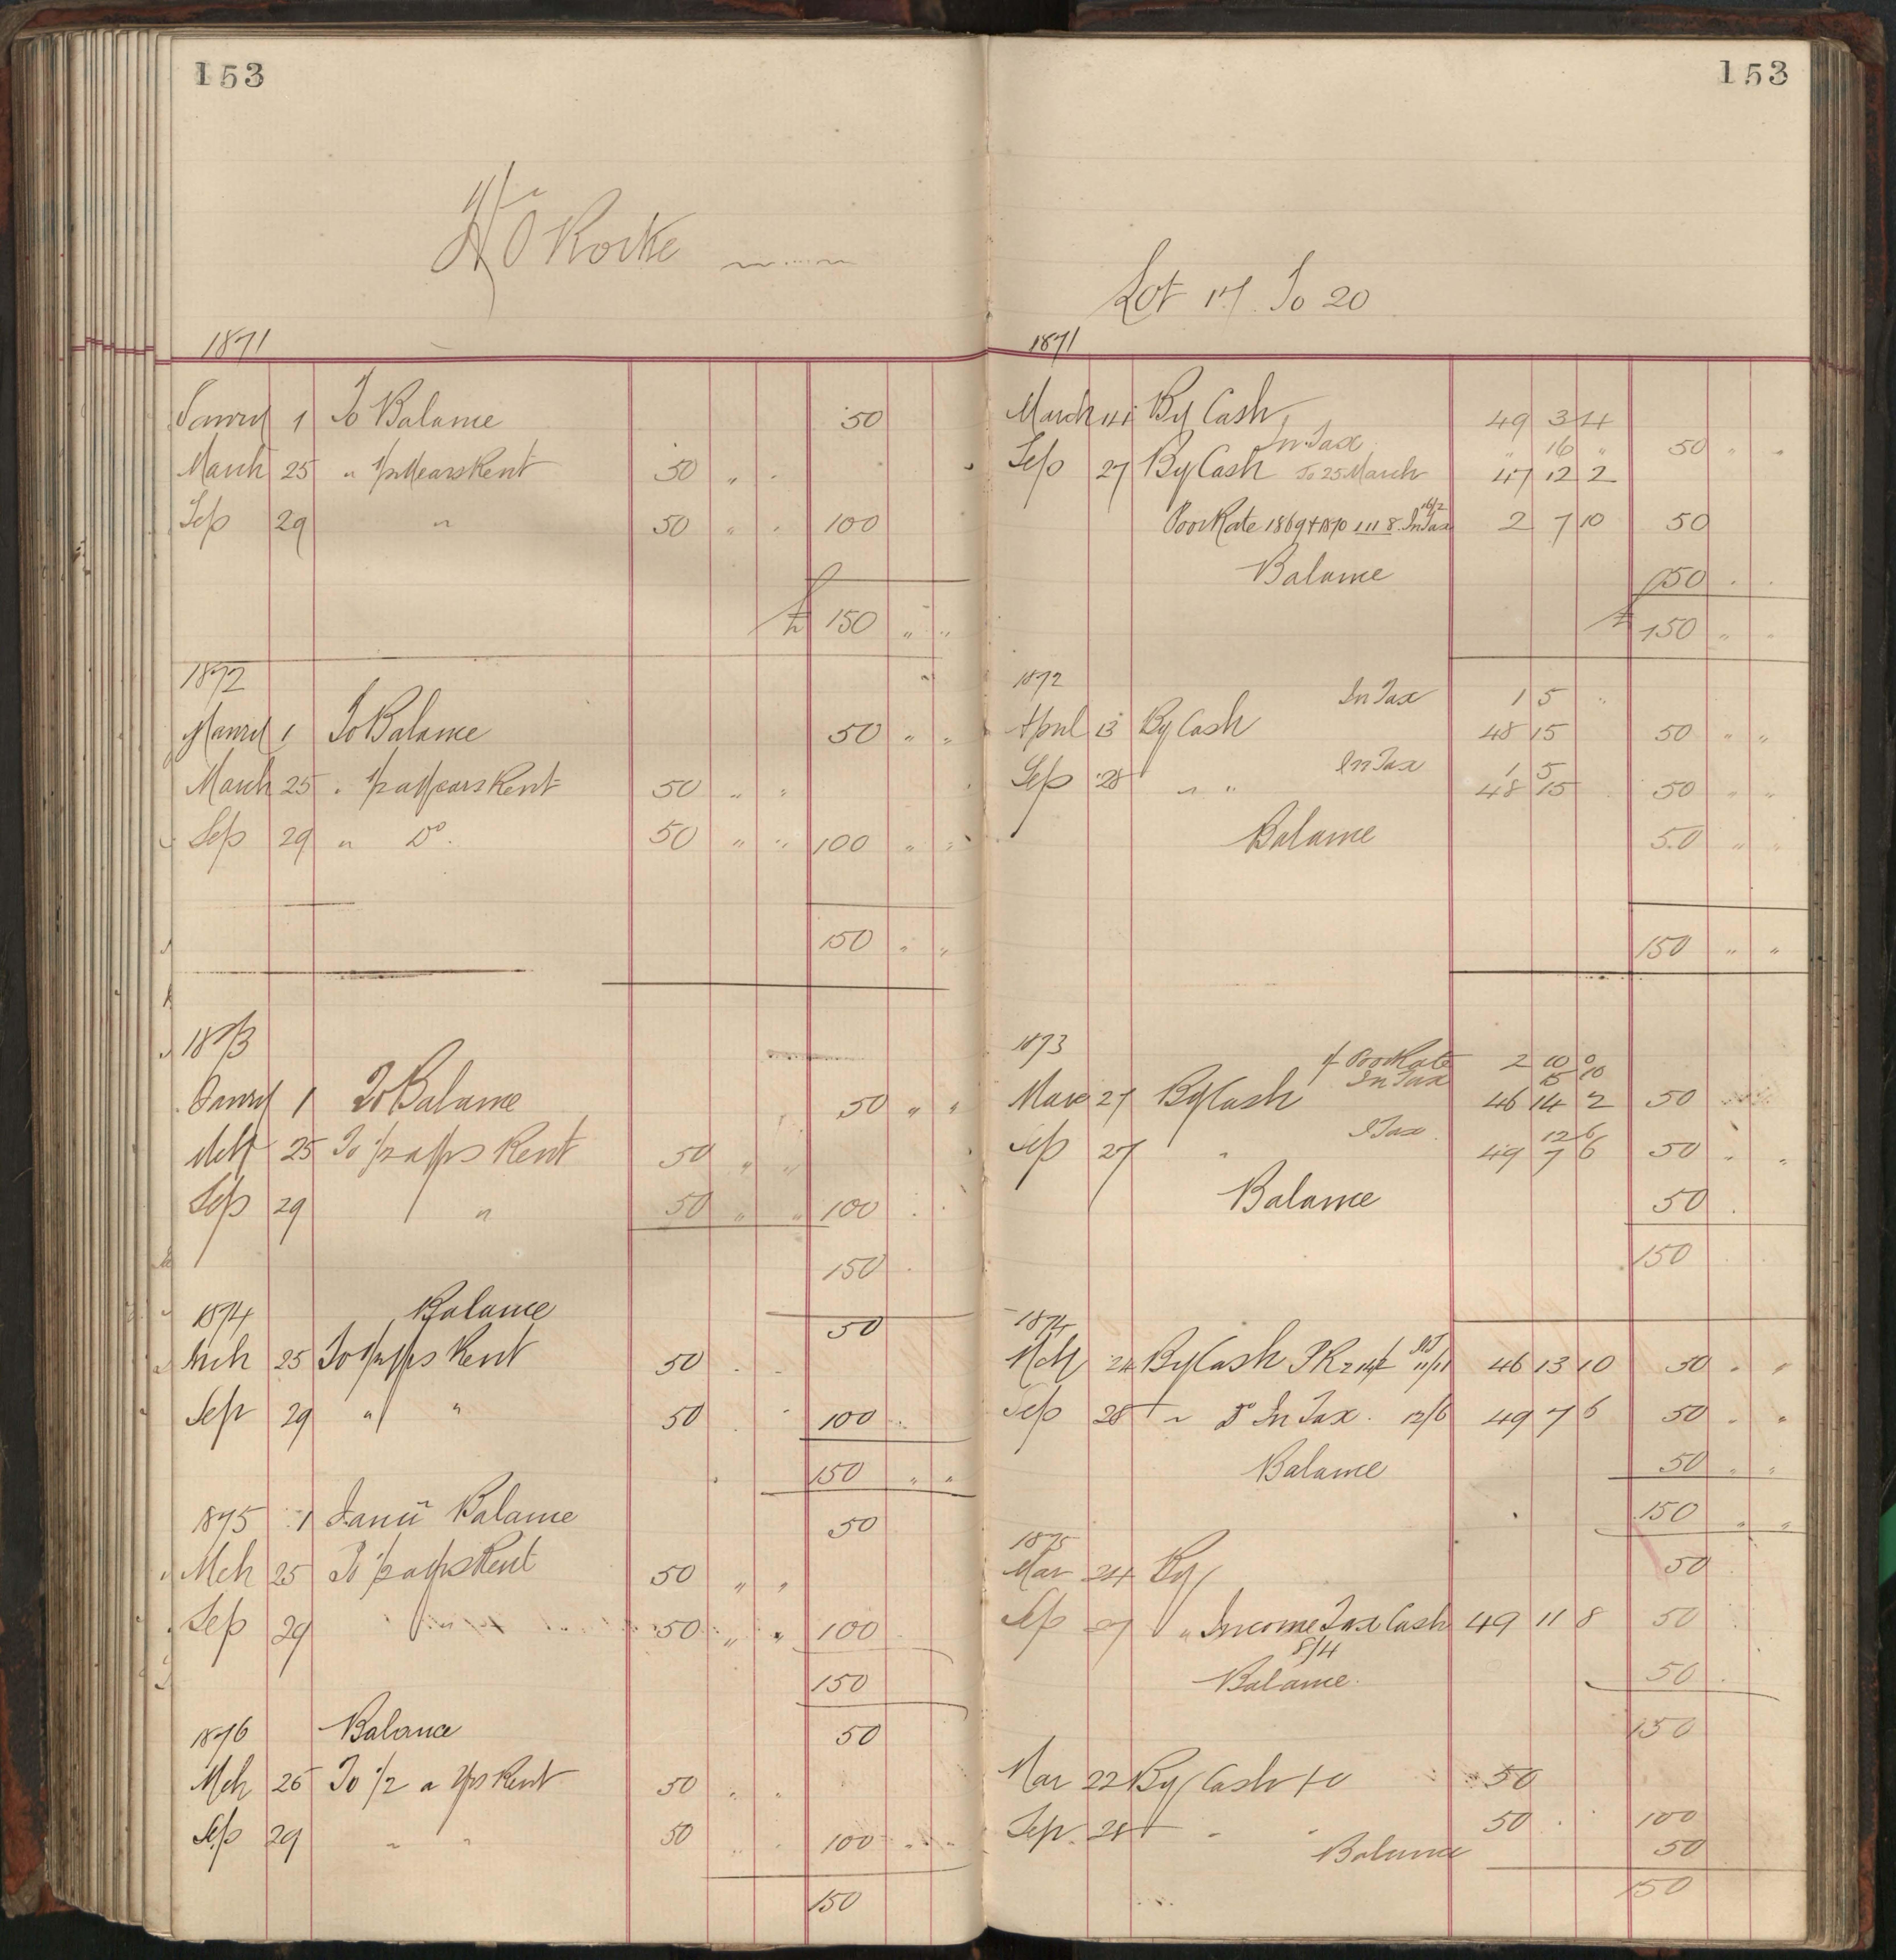 153
O'Rorke
1871
1 To Balance 50
March 25 " 1/2 Years Rent 50 " "
Sep 29 " 50 " " 100
£ 150 " "
1872
1 To Balance 50 " "
March 25 " 1/2 a Years Rent 50 " "
Sep 29 " Do. 50 " " 100 " "
150 " "
1873
1 To Balance 50 " "
Mch 25 To 1/2 a Yrs Rent 50 " "
Sep 29 " 50 " " 100
150
1874 Balance 50
Mch 25 To 1/2 Yrs Rent 50
Sep 29 " " 50 100
150 " "
1875 1 Balance 50
Mch 25 To 1/2 a Yrs Rent 50 " "
Sep 29 50 " " 100
150
1876 Balance 50
Mch 25 To 1/2 a Yrs Rent 50 " "
Sep 29 " " 50 100
150
153
Lot 17 To 20
1871
March 14 By Cash 49 3 4
In Tax " 16 " 50 " "
Sep 27 By Cash To 25 March 47 12 2
Poor Rate 1869 & 1870 1 11 8 In Tax 16/2 2 7 10 50
Balance 50
£ 150 " "
1872
In Tax 1 5 "
April 13 By Cash 48 15 50 " "
In Tax 1 5
Sep 28 " " 48 15 50 " "
Balance 50 " "
150 " "
1873
Poor Rate 2 10 0
In Tax 15 10
Mar 27 By Cash 46 14 2 50
I Tax 12 6
Sep 27 " 49 7 6 50 " "
Balance 50
150
1874
Mch 24 By Cash PR 11/11 46 13 10 50 " "
Sep 28 " Do In Tax 12/6 49 7 6 50 " "
Balance 50 " "
150 " "
1875
Mar 24 By 50
Sep 27 " Income Tax Cash 49 11 8 50
8/4
Balance 50
150
Mar 22 By Cash 50
Sep 28 " " 50 100
Balance 50
150